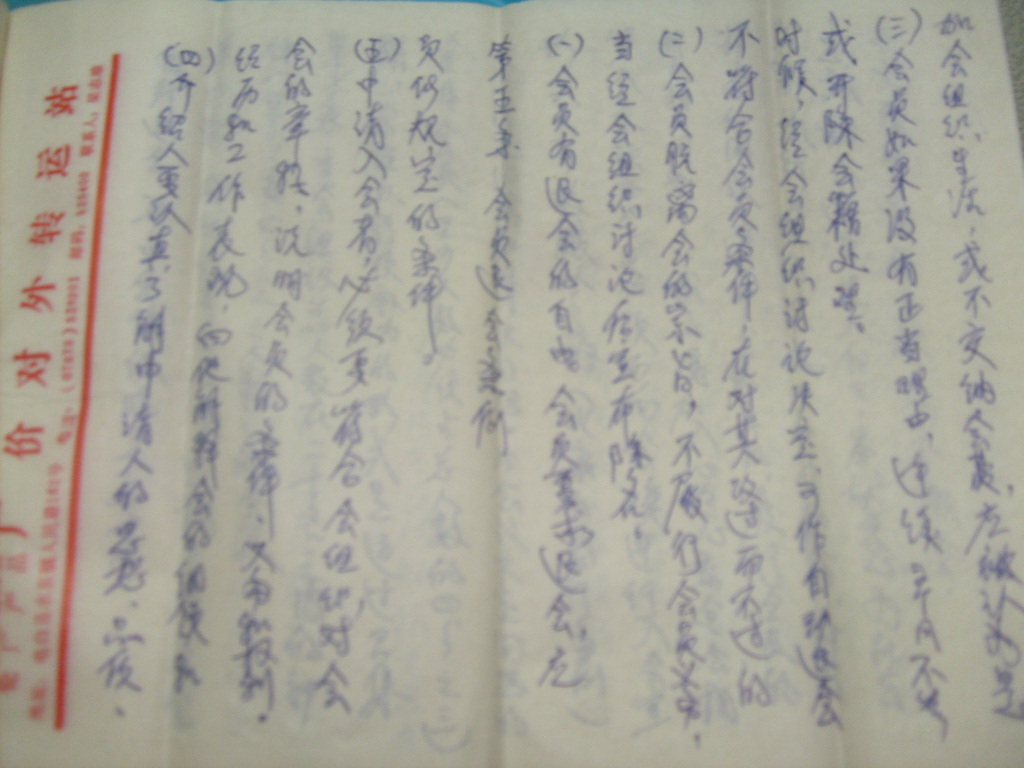 价对外转运站
(四)介绍人要认真了解申请人的思想、品质、
经历和工作表现，向他解释会的纲领和
会的章程，说明会员的条件、义务和权利。
(五)申请入会者，必须要符合会组织对会
员所规定的条件。
第五条 会员退会条例
(一)会员有退会的自由，会员要求退会，应
当经会组织讨论后宣布除名。
(二)会员脱离会的宗旨，不履行会员义务，
不符合会员条件，在对其改过而不过的
时候，经会组织讨论决定，可作自动退会
或开除会籍处理。
(三)会员如果没有正当理由，连续三个月不参
加会组织生活，或不交纳会费，应被认为是